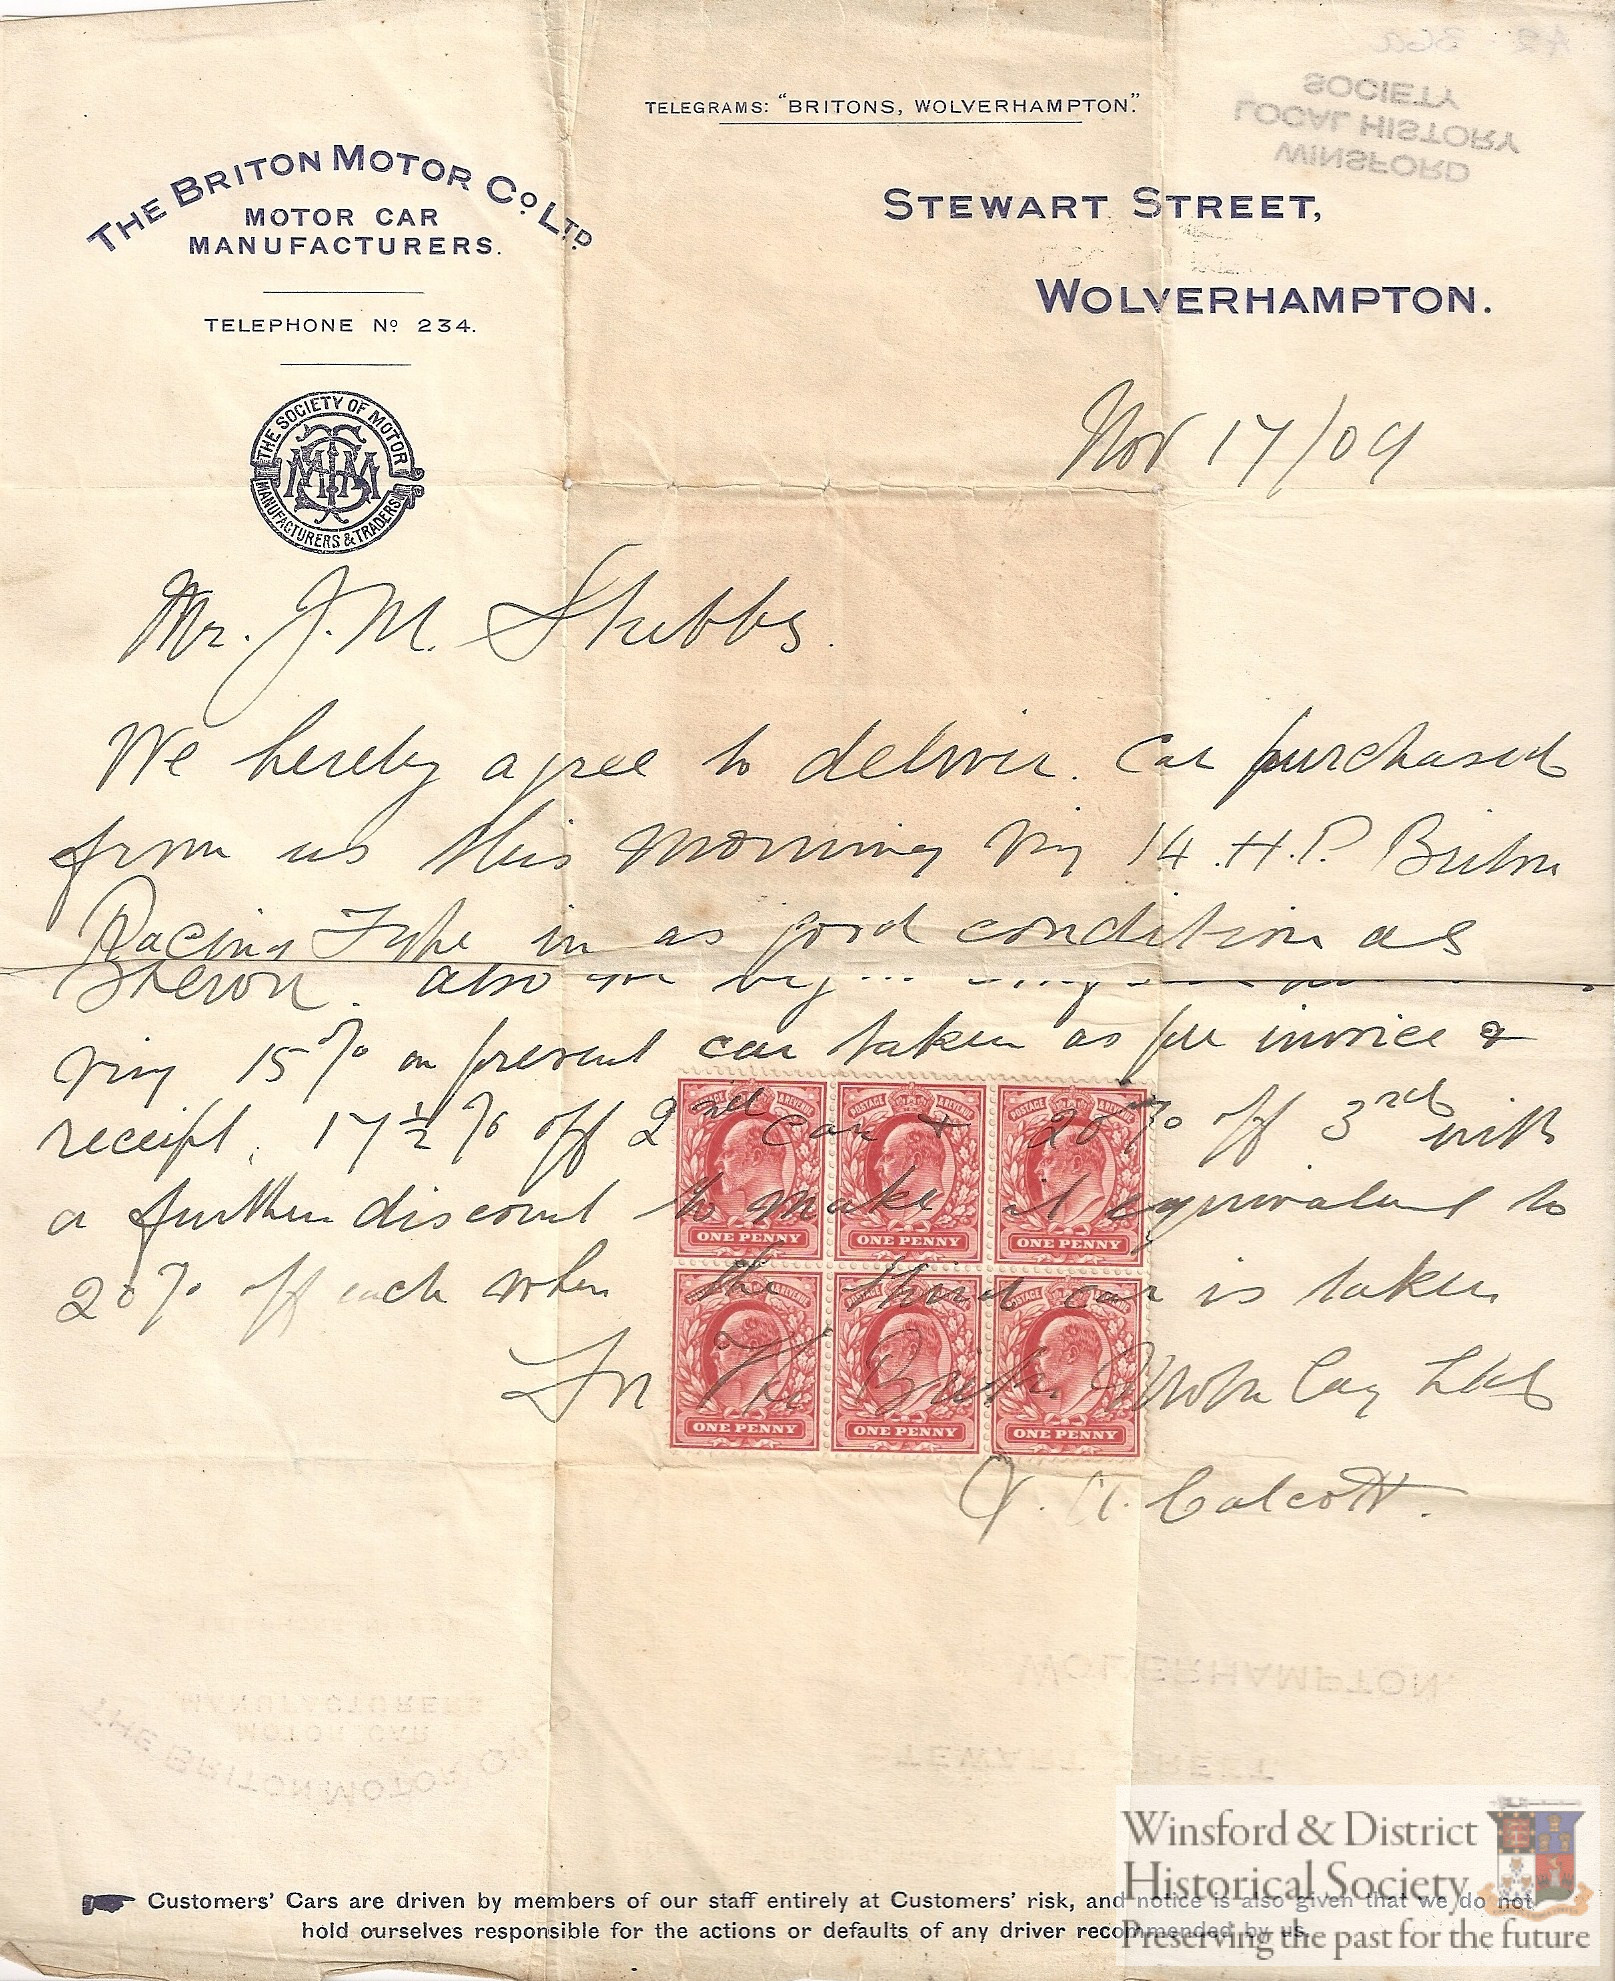 TELEGRAMS: "BRITONS, WOLVERHAMPTON."
THE BRITON MOTOR Co. LTD.
MOTOR CAR
MANUFACTURERS.
TELEPHONE No. 234.
STEWART STREET,
WOLVERHAMPTON.
WINSFORD
LOCAL HISTORY
SOCIETY
THE SOCIETY OF MOTOR
MANUFACTURERS & TRADERS
Nov 17/09
Mr. J. M. Stubbs.
We hereby agree to deliver. Car purchased
from us this morning viz 14 H.P. Briton
Racing Type in as good condition as
also
viz 15% on present car taken as per invoice &
receipt. 17½% off 2nd car & 20% off 3rd with
a further discount to make it equivalent to
20% off each when the third car is taken
For The Briton Motor Coy Ltd
Calcott.
POSTAGE & REVENUE
ONE PENNY
POSTAGE & REVENUE
ONE PENNY
POSTAGE & REVENUE
ONE PENNY
POSTAGE & REVENUE
ONE PENNY
POSTAGE & REVENUE
ONE PENNY
POSTAGE & REVENUE
ONE PENNY
WOLVERHAMPTON.
MANUFACTURERS
MOTOR CAR
THE BRITON MOTOR
Customers' Cars are driven by members of our staff entirely at Customers' risk, and notice is also given that we do not
hold ourselves responsible for the actions or defaults of any driver recommended by us.
Winsford & District
Historical Society
Preserving the past for the future